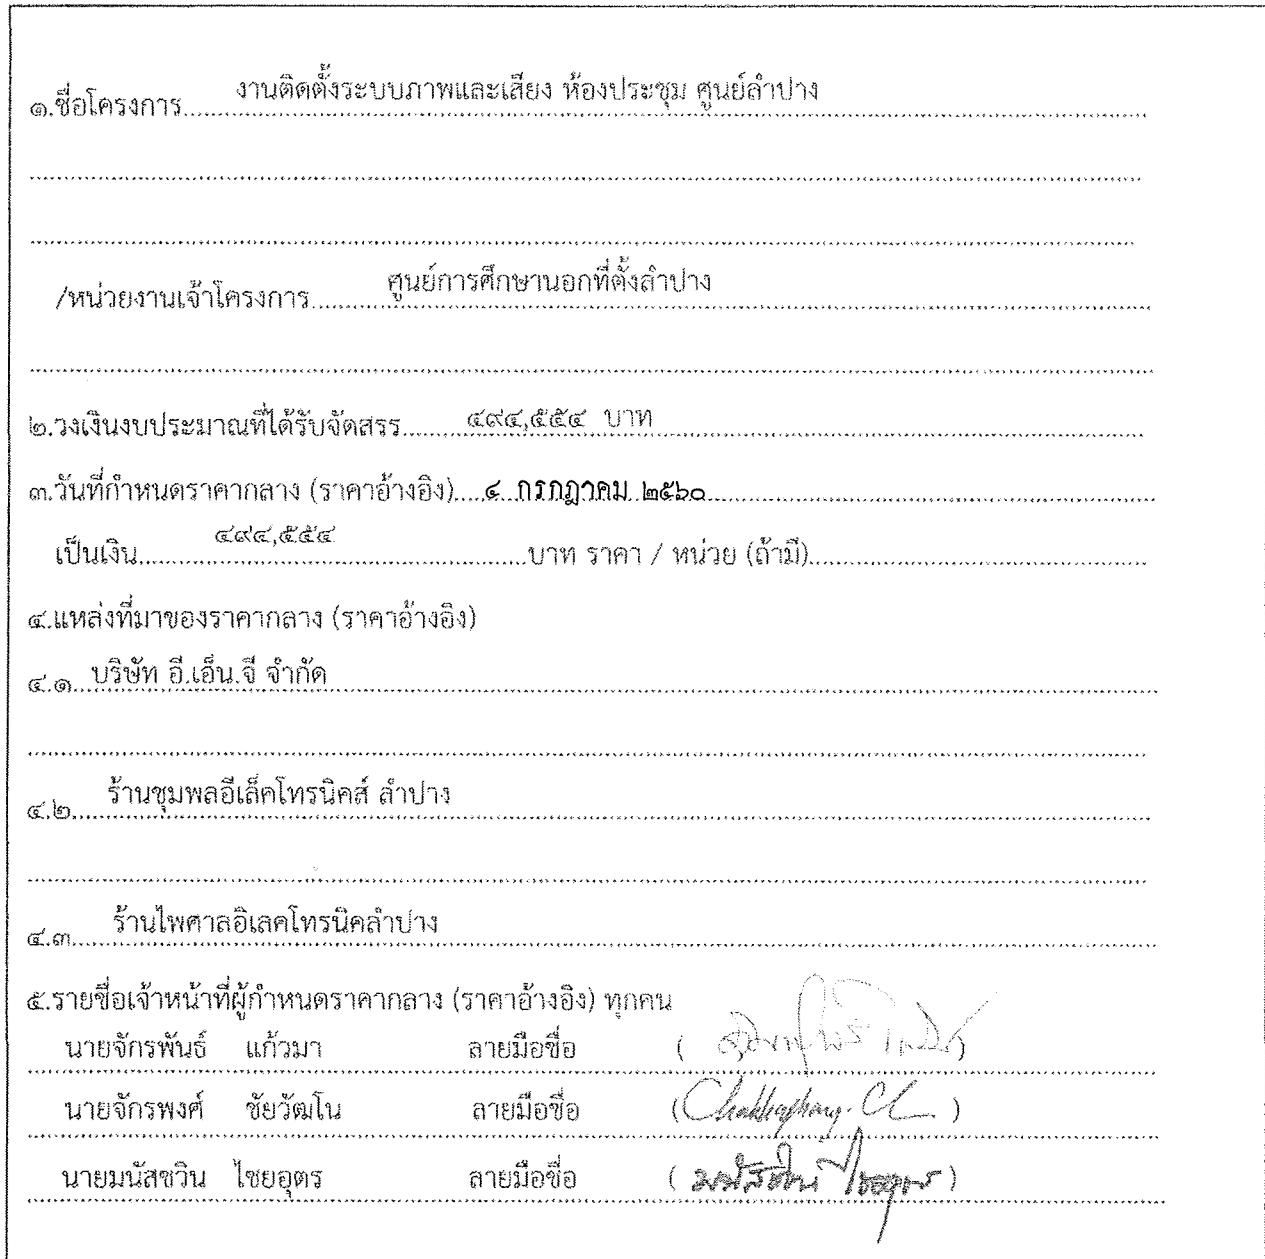 ๑.ชื่อโครงการ งานติดตั้งระบบภาพและเสียง ห้องประชุม ศูนย์ลำปาง
/หน่วยงานเจ้าโครงการ ศูนย์การศึกษานอกที่ตั้งลำปาง
๒.วงเงินงบประมาณที่ได้รับจัดสรร ๔๙๔,๕๕๔ บาท
๓.วันที่กำหนดราคากลาง (ราคาอ้างอิง) ๔ กรกฎาคม ๒๕๖๐
เป็นเงิน ๔๙๔,๕๕๔ บาท ราคา / หน่วย (ถ้ามี)
๔.แหล่งที่มาของราคากลาง (ราคาอ้างอิง)
๔.๑ บริษัท อี.เอ็น.จี จำกัด
๔.๒ ร้านชุมพลอีเล็คโทรนิคส์ ลำปาง
๔.๓ ร้านไพศาลอิเลคโทรนิคลำปาง
๕.รายชื่อเจ้าหน้าที่ผู้กำหนดราคากลาง (ราคาอ้างอิง) ทุกคน
นายจักรพันธ์ แก้วมา ลายมือชื่อ ( )
นายจักรพงศ์ ชัยวัฒโน ลายมือชื่อ ( )
นายมนัสชวิน ไชยอุตร ลายมือชื่อ ( )